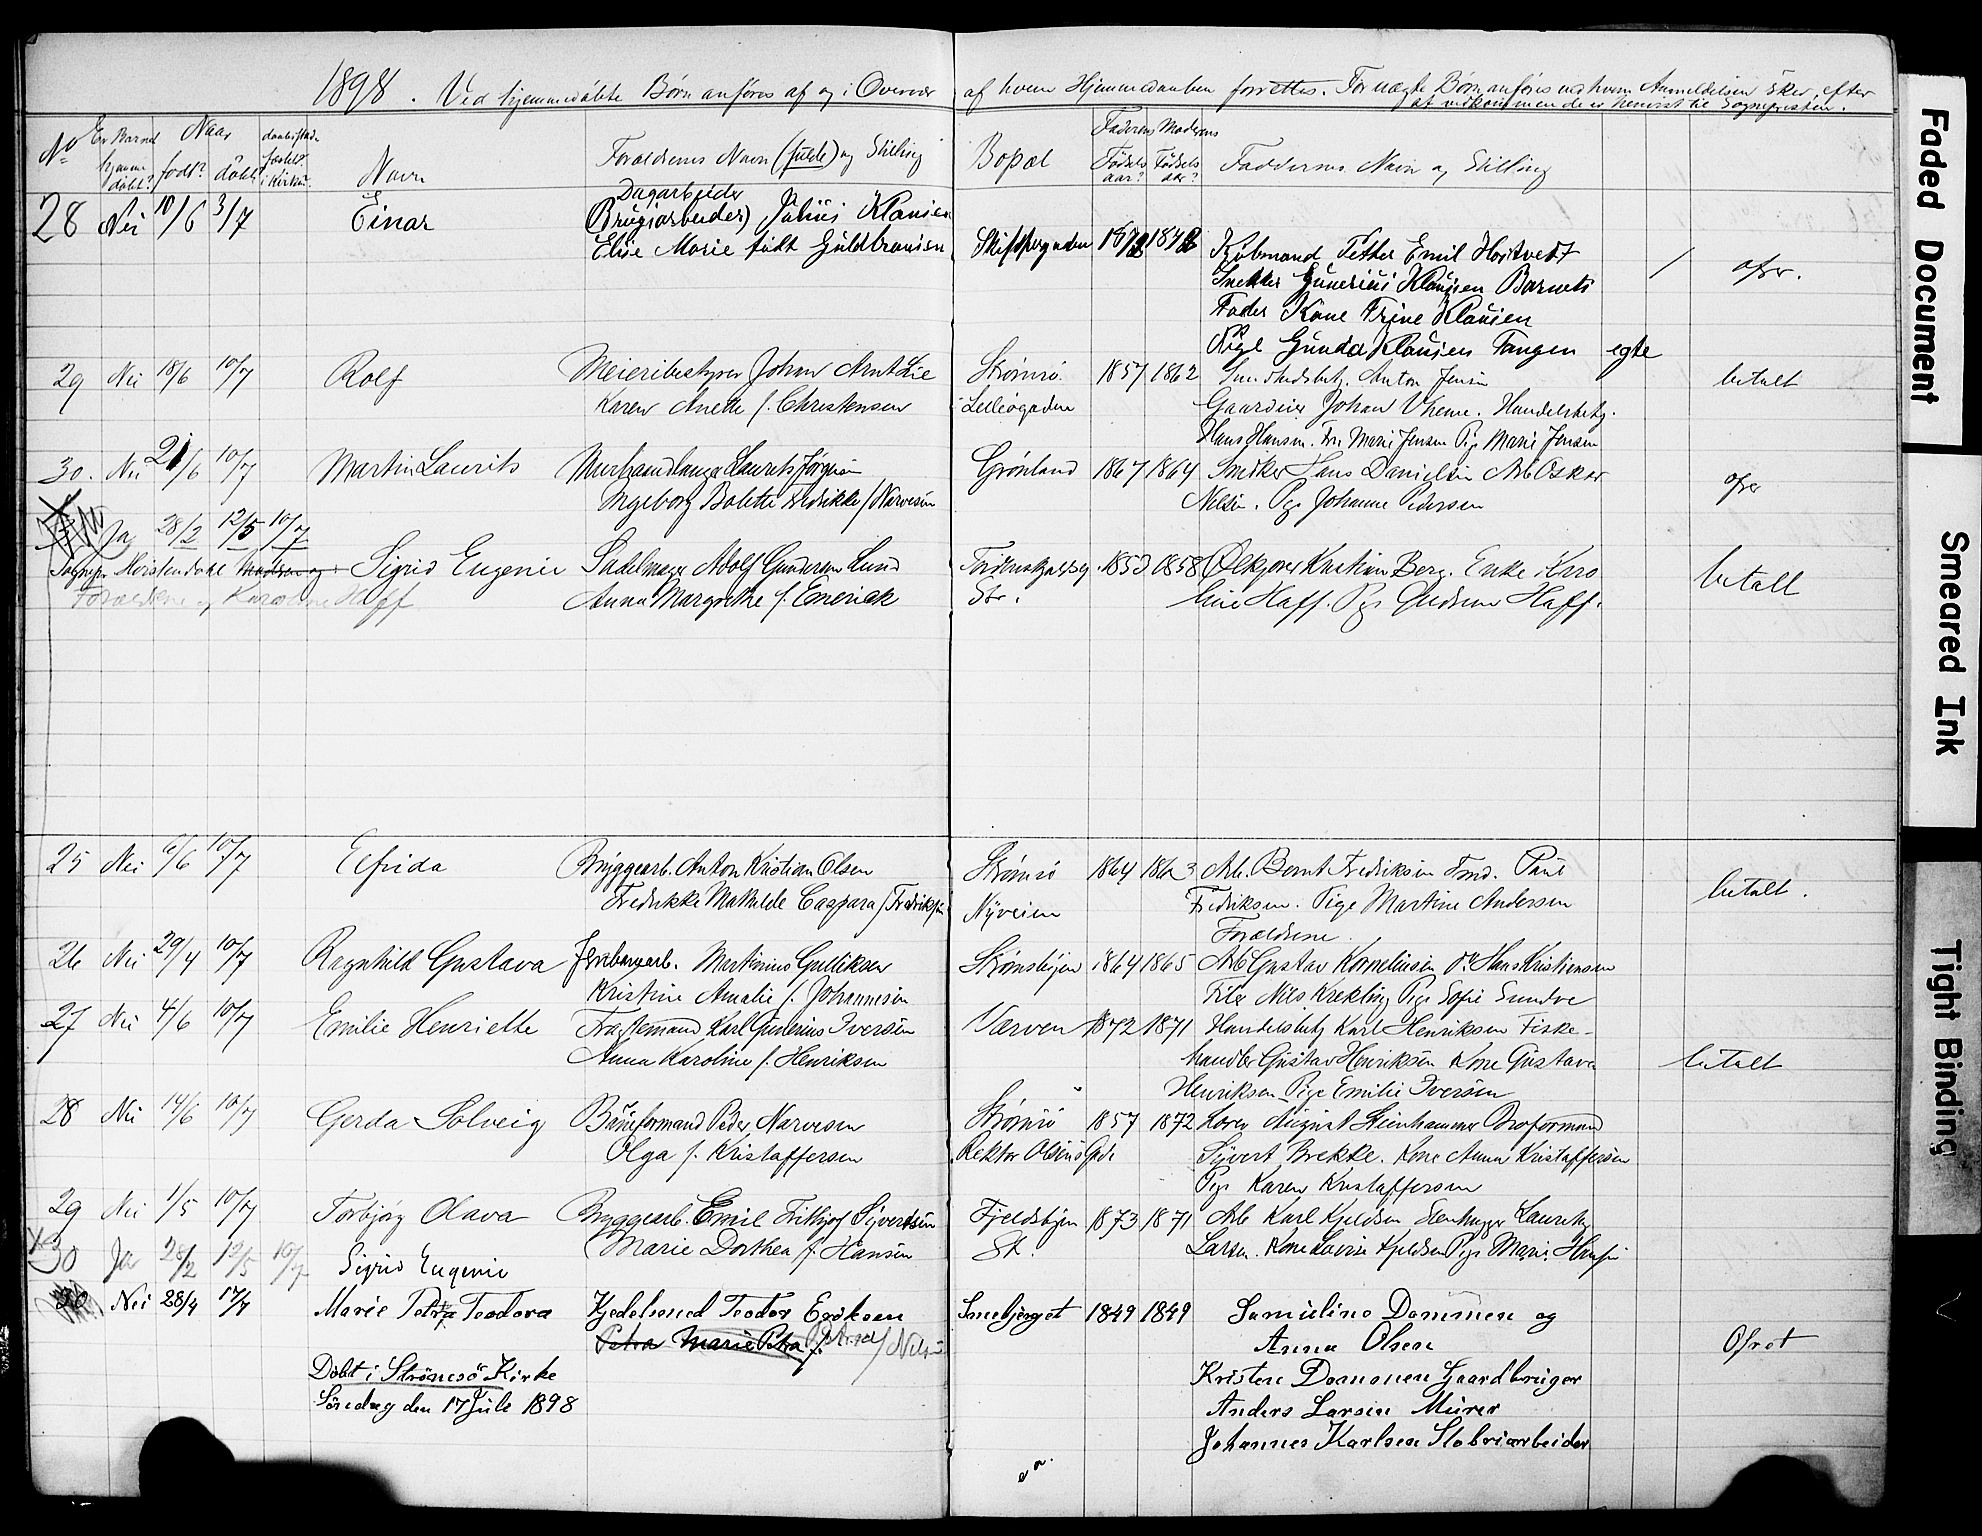 1898. Ved hjemmedøbte Børn anføres af og i Overvær af hvem Hjemmedaaben forrettes. For uægte Børn anføres ved hvem Anmeldelsen sker, efter
at vedkommende er henvist til Sognepresten.
No Er Barnet hjemmedøbt? Naar født? døbt? daabsstad. fæstet i Kirken.
Navn
Forældrenes Navn (fulde) og Stilling
Bopæl
Faderens Fødselsaar? Moderens Fødselsaar?
Faddernes Navn og Stilling
Dagarbeider
28 Nei 10/6 3/7 Einar (Brugsarbeider) Julius Klausen
Elise Marie født Guldbransen Skippergaden 1872 1872 Kjøbmand Petter Emil Hostvedt / ofr.
Snekker Gunerius Klausen Barnets
Fader Kone Trine Klausen
Pige Gunda Klausen Tangen egte
29 Nei 18/6 10/7 Rolf Meieribestyrer Johan Arnt Lie Strømsø 1857 1862 Anton Jensen betalt
Karen Anette f. Christensen Lilleøgaden Gaardeier Johan Handelsbetj.
Hans Hansen. Fru Marie Jensen Pige Marie Jensen
30. Nei 21/6 10/7 Martin Laurits Murhandlanger Laurits Jørgensen Grønland 1867 1864 Snedker Hans Danielsen Arb Oskar ofrer
Ingeborg Bolette Fredrikke f Narvesen Nilsen. Pige Johanne Pedersen
Ja 28/2 12/5 10/7
Sognepr. Horstendahl Madsen og Sigrid Eugenie Sadelmager Adolf Gundersen Lund Tordenskjoldsg. 1853 1858 Ølkjører Kristian Berg. Enke Karo betalt
Forældrene og Karoline Haff Anna Margrethe f. Enersen Str. line Haff. Pige Gudrun Haff.
25 Nei 6/6 10/7 Elfrida Bryggearb. Anton Kristian Olsen Strømsø 1864 1863 Arb. Bernt Fredriksen Fmd. Paul betalt.
Fredrikke Mathilde Caspara f Fredriksen Nyveien Fredriksen. Pige Martine Andersen
Forældrene
26 Nei 29/4 10/7 Ragnhild Gustava Jernbanearb. Martinius Gulliksen Strømsbyen 1864 1865 Arb Gustav Korneliusen Do Hans Kristiansen
Kristine Amalie f. Johannesen Filer Nils Krekling Pige Sofie Sundve
27 Nei 4/6 10/7 Emilie Henriette Fragtemand Karl Gunerius Iversen Værven 1872 1871 Handelsbetj Karl Henriksen Fiske-
Anna Karoline f. Henriksen handler Gustav Henriksen Kone Gustava betalt
Henriksen Pige Emilie Iversen
28 Nei 14/6 10/7 Gerda Solveig Baneformand Peder Narvesen Strømsø 1857 1872 August Steinhammer Broformand
Olga f. Kristoffersen Rektor Olsens Gade Sivert Brekke. Kone Anna Kristoffersen
Pige Karen Kristoffersen
29 Nei 1/5 10/7 Torbjørg Olava Bryggearb. Emil Frithjof Sivertsen Fjeldsbyen 1873 1871 Arb Karl Kjeldsen Stenhugger Lauritz
Marie Dorthea f. Hansen St. Larsen. Kone Lovise Kjeldsen Pige Marie Hansen
X30 Ja 28/2 12/5 10/7 Sigrid Eugenie
30 Nei 28/4 17/7 Marie Petra Teodora Kjedelsmed Teodor Eriksen Smebjerget 1849 1849 Samuline Dammen og
Petra Marie Petra f. Petrea f Anna Olsen Ofret
Døbt i Strömsö Kirke Kristen Dommen Gaardbruger
Söndag den 17 Juli 1898 Anders Larsen Murer
Johannes Karlsen Slobriarbeider
Faded Document
Smeared Ink
Tight Binding